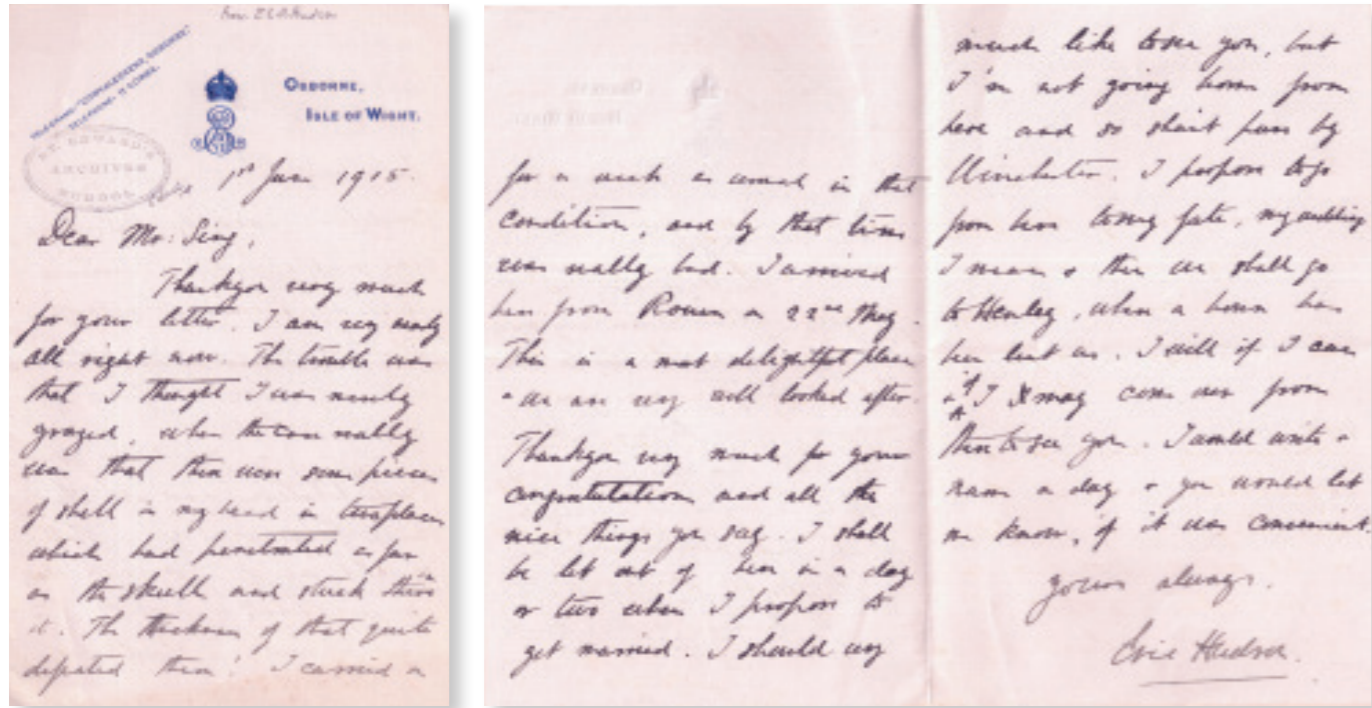 OSBORNE,
ISLE OF WIGHT.
ST. EDWARD'S
ARCHIVES
SCHOOL
1st June 1915.
Dear Mr: Sing,
Thankyou very much
for your letter. I am very nearly
all right now. The trouble was
that I thought I was merely
grazed, when the case really
was that there were some pieces
of shell in my head in two places
which had penetrated as far
as the skull and stuck there
it. The thickness of that quite
defeated them! I carried on
for a week as usual in that
condition, and by that time
was really bad. I arrived
here from Rouen on 22nd May.
This is a most delightful place
+ we are very well looked after.
Thankyou very much for your
congratulations and all the
nice things you say. I shall
be let out of here in a day
or two when I propose to
get married. I should very
much like to see you, but
I'm not going home from
here and so shan't pass by
Winchester. I propose to go
from here to my fate, my wedding
I mean + then we shall go
to Henley, where a house has
been lent us. I will if I can
+ if I may come over from
there to see you. I would write +
name a day + you would let
me know, if it was convenient.
yours always.
Eric Hudson.